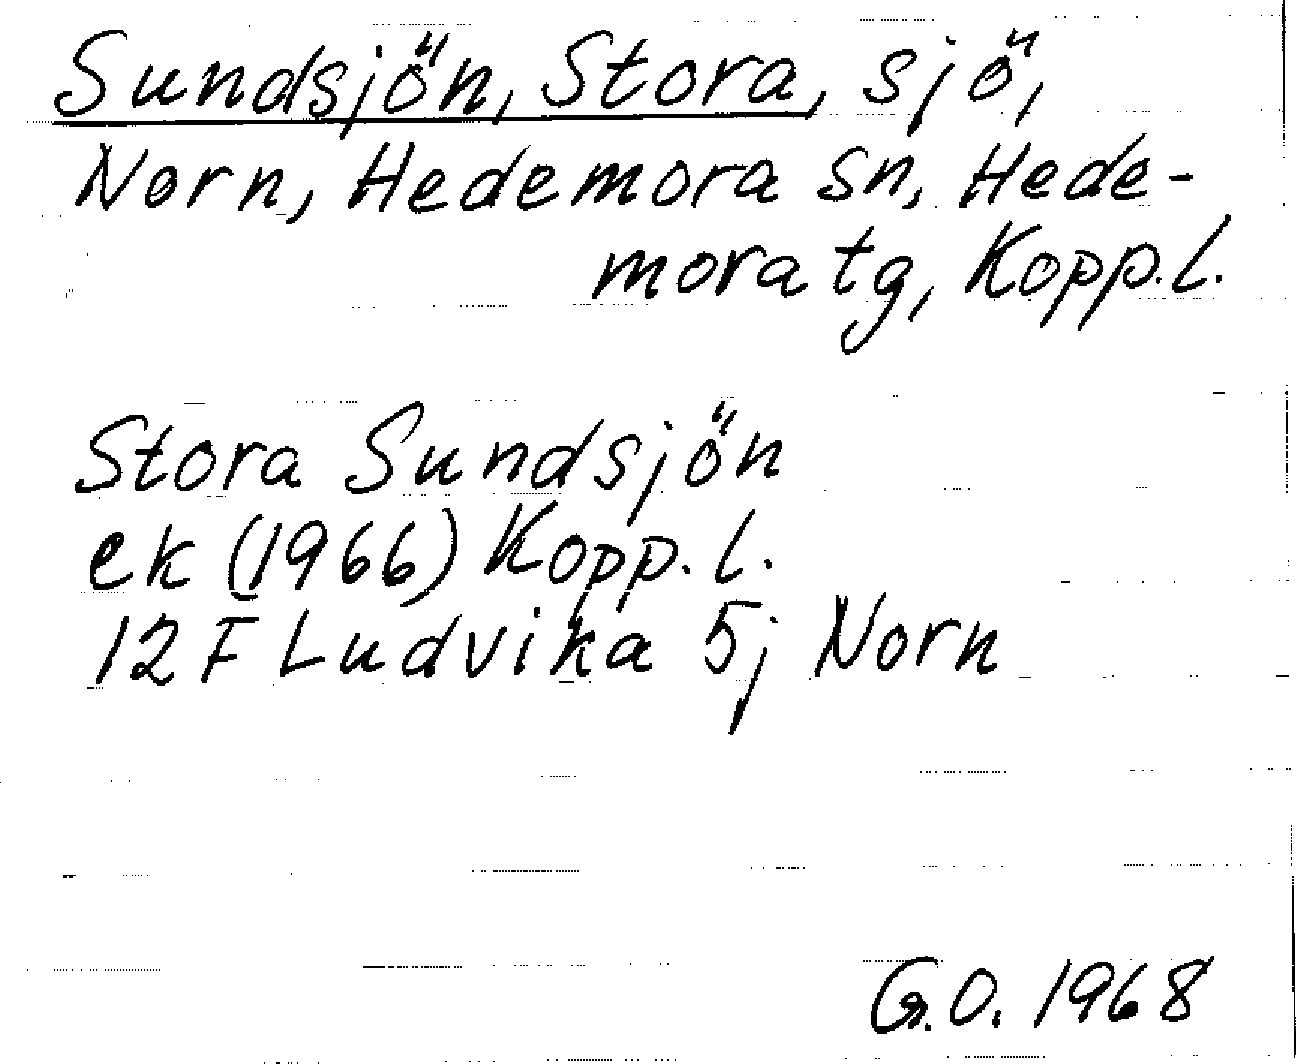 Sundsjön, Stora, sjö,
Norn, Hedemora sn, Hede-
mora tg, Kopp.l.
Stora Sundsjön
ek (1966) Kopp.l.
12F Ludvika 5j Norn
G.O. 1968